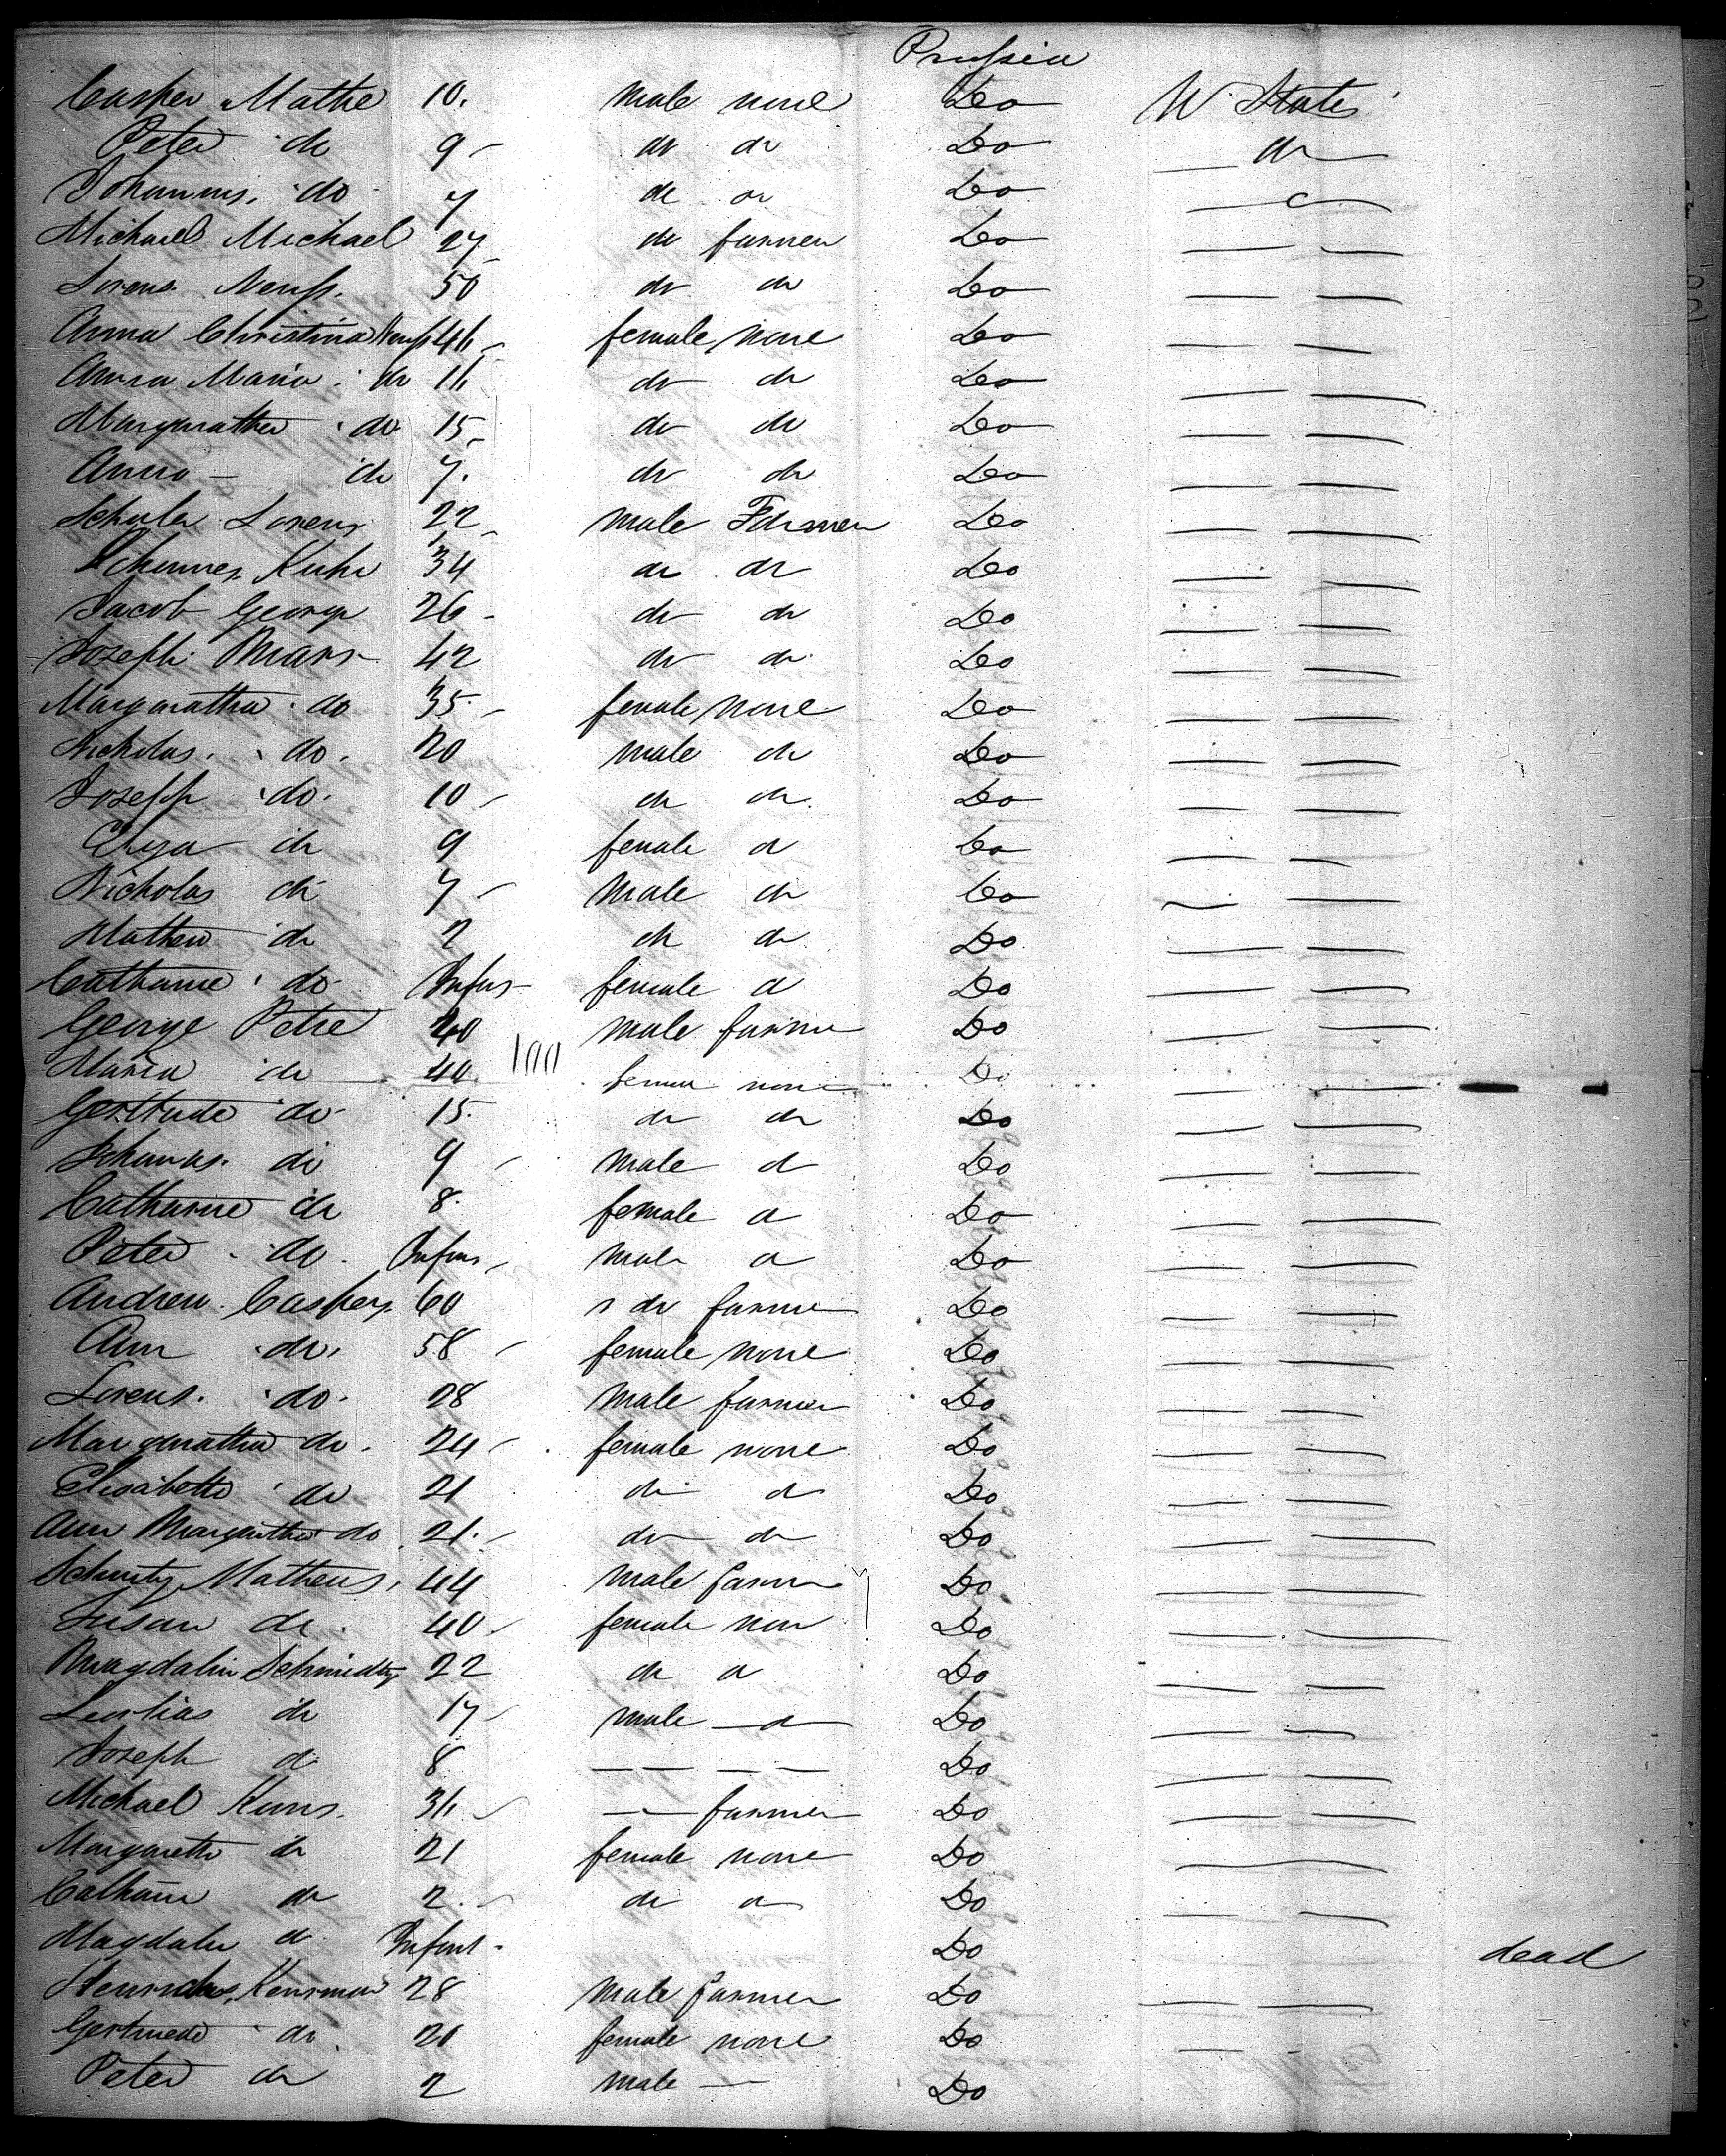 Prussia
Casper Mathe 10. male none Do U States
Peter do 9 do do Do do
Johannis. do 7 do do Do
Michael Michael 27 do farmer Do
Lorens 50 do do Do
Anna Christina 46 female none Do
Anna Maria do 16 do do Do
Margaratha do 15 do do Do
Anna do 7. do do Do
Lorens 22 male Farmer Do
Johannes Kuhn 34 do do Do
Jacob George 26 do do Do
Joseph 42 do do Do
Margaratha do 35 female none Do
Nicholas. do. 20 male do Do
Joseph do. 10 do do. Do
do 9 female do Do
Nicholas do 7 male do Do
Mathew do 2 do do Do
Catharine do Infant female do Do
George Petre 40 male farmer Do
Maria do 40 female none Do
Gertrude do 15 do do Do
do 9 male do Do
Catharine do 8. female do Do
Peter do. Infant male do Do
Andrew Caspers 60 do farmer Do
Ann do. 58 female none Do
Lorens. do. 28 male farmer Do
Margaratha do. 24 female none Do
Elisabetha do 21 do do Do
Ann Margaratha do 21. do do Do
Schmitz Matheus 44 male farmer Do
Susan do. 40 female non Do
Magdalin 22 do do Do
do 17 male do Do
Joseph do 8 Do
Michael Kuns. 36 farmer Do
Margareth do 21 female none Do
Catharin do 2. do do Do
Magdalin do Infant Do dead
28 male farmer Do
Gertruede do 20 female none Do
Peter do 2 male Do